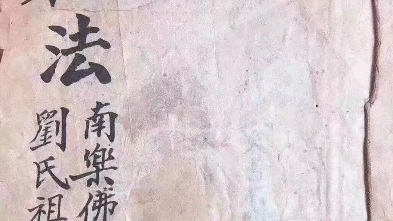 法
南樂佛
劉氏祖